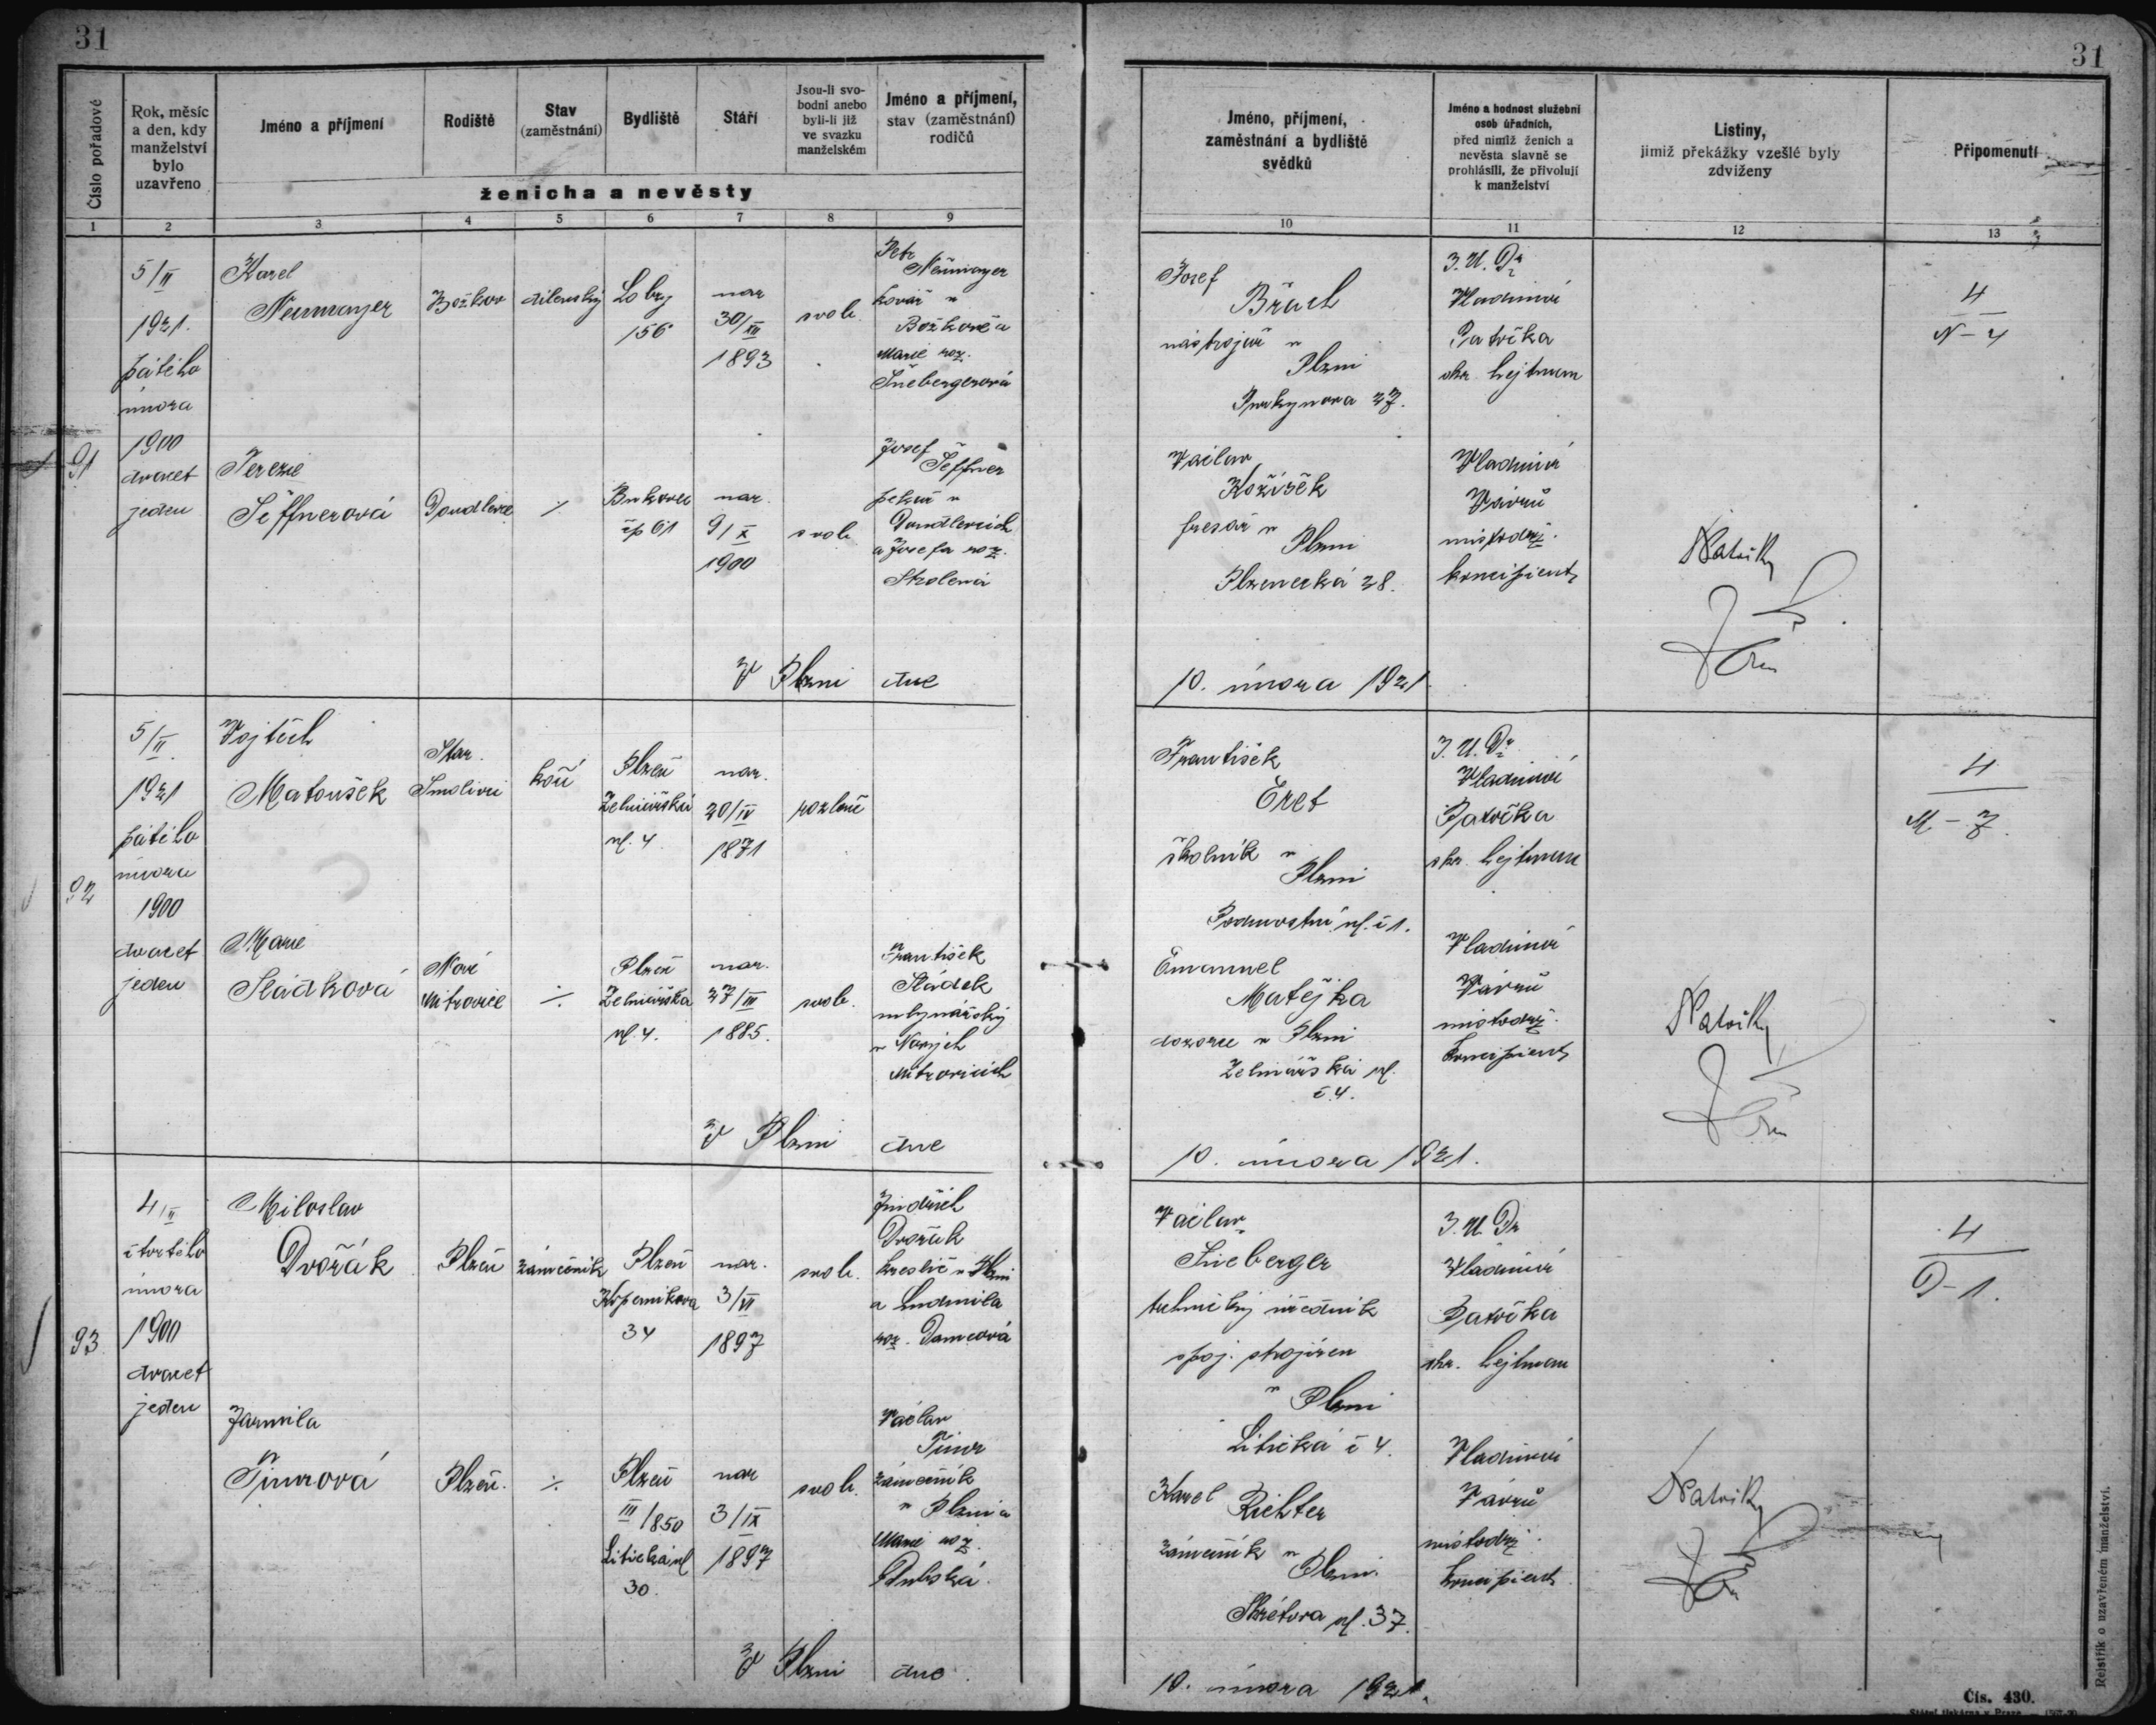 31
31
Číslo pořadové
Rok, měsíc
a den, kdy
manželství
bylo
uzavřeno
Jméno a příjmení
Rodiště
Stav
(zaměstnání)
Bydliště
Stáří
Jsou-li svo-
bodni anebo
byli-li již
ve svazku
manželském
Jméno a příjmení,
stav (zaměstnání)
rodičů
ženicha a nevěsty
Jméno, příjmení,
zaměstnání a bydliště
svědků
Jméno a hodnost služební
osob úřadních,
před nimiž ženich a
nevěsta slavně se
prohlásili, že přivolují
k manželství
Listiny,
jimiž překážky vzešlé byly
zdviženy
Připomenutí
1 2 3 4 5 6 7 8 9
10 11 12 13
91
5/II
1921.
pátého
února
1900
dvacet
jeden
Karel
Neumayer
Božkov
dílenský
Lobzy
156
nar
30/XII
1893
svob.
Petr
Neumayer
kovář v
Božkově a
Marie roz.
Terezie
Šeffnerová
Doudlevce
÷
Bukovec
čp 61
nar.
9/X
1900
svob
Josef
Šeffner
pekař v
Doudlevcích
a Josefa roz.
V Plzni dne
Josef
nástrojař v
Plzni
Purkyňova 27.
Václav
Kožíšek
v
Plzni
Plzenecká 28.
10. února 1921
J. U. Dr
Vladimír
Patočka
Vladimír
Vávrů
místodrž.
koncipient
4
N-4
92
5/II.
1921
pátého
února
1900
dvacet
jeden
Vojtěch
Matoušek
Star.
Smolivec
Plzeň
Zelinářská
ul. 4.
nar.
20/IV
1871
rozluč
Marie
Sládková
Nové
Mitrovice
÷
Plzeň
Zelinářská
ul. 4.
nar.
27/III
1885.
svob.
František
Sládek
mlynářský
v Nových
Mitrovicích
V Plzni dne
František
Eret
školník v
Plzni
ul. č 1.
Emanuel
Matějka
dozorce v Plzni
Zelinářská ul.
č. 4.
10. února 1921.
J. U. Dr
Vladimír
Patočka
Vladimír
Vávrů
místodrž.
koncipient
4
M-7.
93
4/II
čtvrtého
února
1900
dvacet
jeden
Miloslav
Dvořák
Plzeň
zámečník
Plzeň
Koperníkova
34
nar.
3/VI
1897
svob.
Jindřich
Dvořák
kreslič v Plzni
a Ludmila
roz.
Jarmila
Tůmová
Plzeň.
÷
Plzeň
III/850
Litická ul
30.
nar
3/IX
1897
svob.
Václav
Tůma
zámečník
v Plzni a
Marie roz.
V Plzni dne
Václav
technický úředník
spoj. strojíren
v Plzni
Litická č 4.
Karel
Richter
zámečník v
Plzni
Skrétova ul. 37.
10. února 1921.
J. U. Dr
Vladimír
Patočka
Vladimír
Vávrů
místodrž.
koncipient
4
D-1.
Rejstřík o uzavřeném manželství.
Čís. 430.